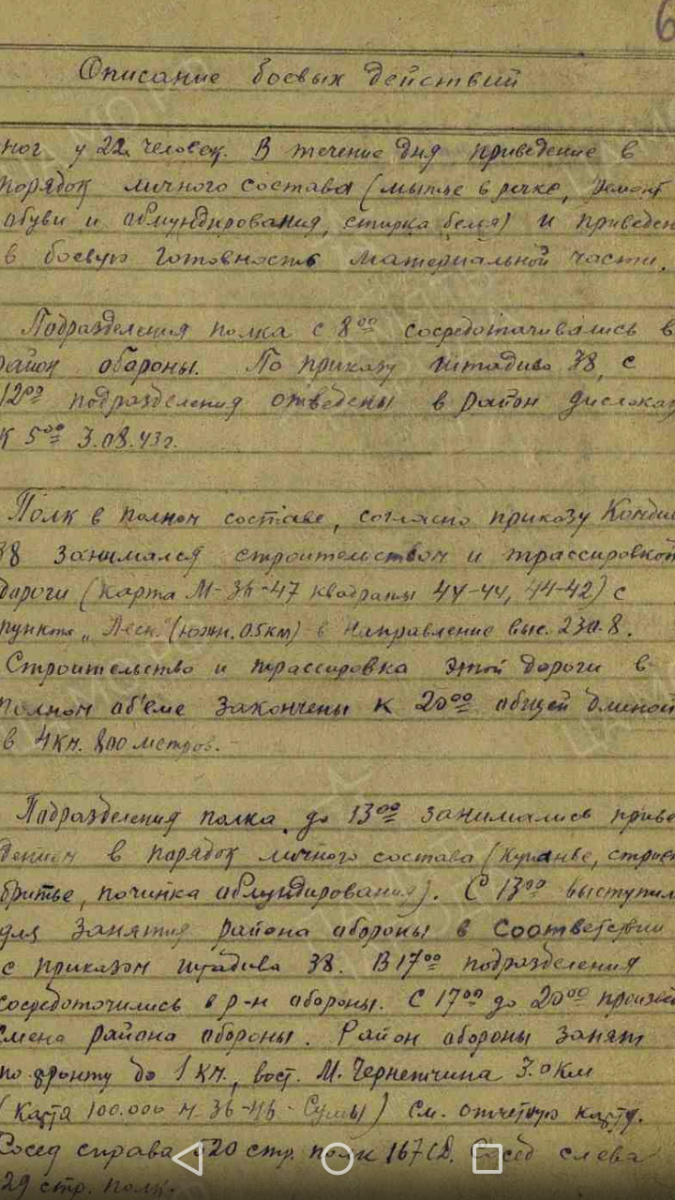 6
Описание боевых действий
ног у 22 человек. В течение дня приведение в
порядок личного состава (мытье в речке, ремонт
обуви и обмундирования, стирка белья) и приведен
в боевую готовность материальной части.
Подразделения полка с 8⁰⁰ сосредотачивались в
район обороны. По приказу штадива 38, с
12⁰⁰ подразделения отведены в район дислокац
к 5⁰⁰ 3.08.43г.
Полк в полном составе, согласно приказу Комдив
38 занимался строительством и трассировкой
дороги (карта М-36-47 квадраты 44-44, 44-42) с
пункта „Лесн." (южн. 0.5км) в направление выс. 230.8.
Строительство и трассировка этой дороги в
полном об'еме закончены к 20⁰⁰ общей длиной
в 4км. 800 метров.
Подразделения полка до 13⁰⁰ занимались приве
дением в порядок личного состава (купанье, стриж
бритье, починка обмундирования). С 13⁰⁰ выступил
для занятия района обороны в соответствии
с приказом штадива 38. В 17⁰⁰ подразделения
сосредоточились в р-н обороны. С 17⁰⁰ до 20⁰⁰ произве
смена района обороны. Район обороны занят
по фронту до 1 км., вост. М. Чернетчина 3.0км
(карта 100.000 М-36-46-Сумы) см. отчетную карту.
Сосед справа 520 стр. полк 167СД. Сосед слева
29 стр. полк.